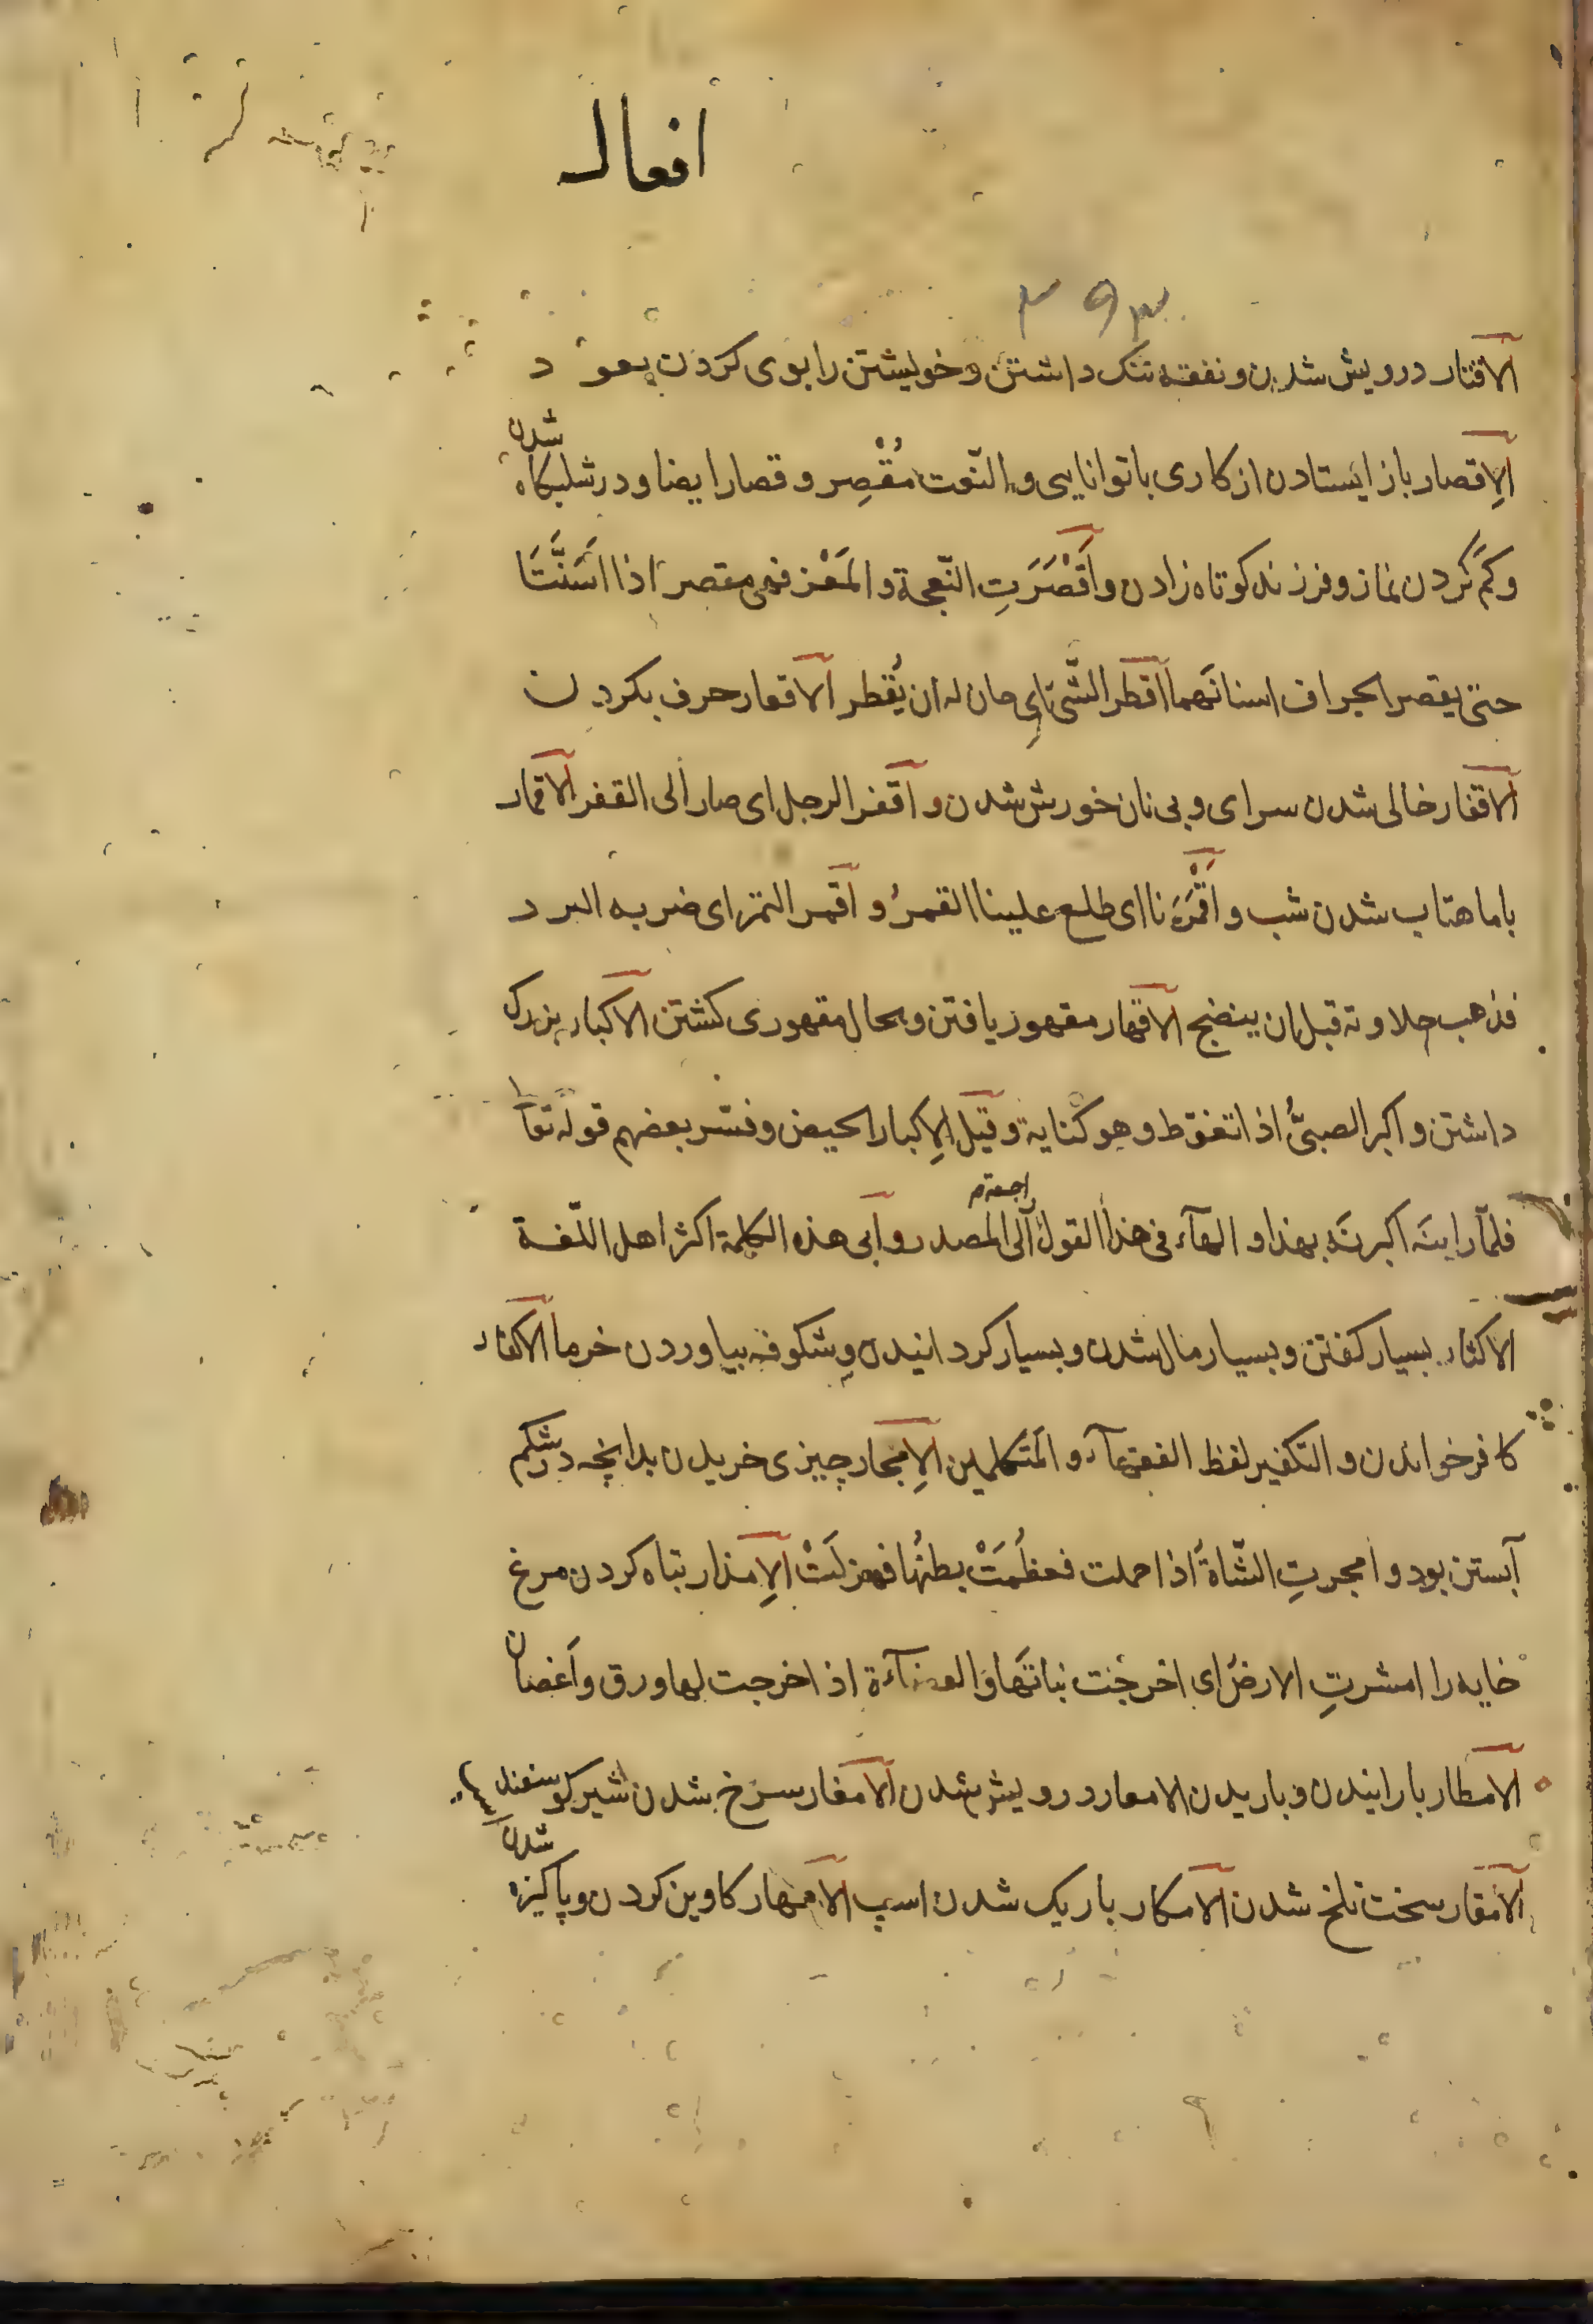 افعال
٣٩٣
الاقتار درویش شدن و نفقه تنک داشتن و خویشتن را بوی کردن بعود
الاِقصار باز ایستادن از کاری با توانایی و النّعت مُقْصِر و قصار ایضا و در شبانکاه شدن
و کم کردن نماز و فرزند کوتاه زادن و اَقْصَرَتِ النّعجة و المَعْز فهی مقصر اذا اَسَنَّتَا
حتی یقصر اطراف اسنانهما اقطر الشّیٔ ای حان له ان یُقطر الاقعار حرف بکردن
الاقفار خالی شدن سرای و بی نان خورش شدن و اقفر الرجل ای صار الی القفر الاقمار
با ماهتاب شدن شب و اَقْمَرَنا ای طلع علینا القمرُ و اقمر التمر ای ضربه البرد
فذهب حلاوته قبل ان ینضج الاقهار مقهور یافتن و بحال مقهوری کشتن الاکبار بزرک
داشتن و اکبر الصبیُّ اذا تغوّط و هو کنایة و قیل الاِکبار الحیض و فسّر بعضهم قوله تعا
فلمّا راینَه اکبرنَه بهذا و الهآء فی هذا القول راجعة الی المصدر و ابی هذه الکلمة اکثر اهل اللّغة
الاکثار بسیار کفتن و بسیار مال شدن و بسیار کردانیدن و شکوفه بیاوردن خرما الاکفار
کافر خواندن و التکفیر لفظ الفقهآء و المتکلمین الاِمجار چیزی خریدن بدانچه در شکم
آبستن بود و امجرتِ الشّاةُ اذا حملت فعظُمَتْ بطنُها فهزلَتْ الاِمذار تباه کردن مرغ
خایه را امشرتِ الارضُ ای اخرجْت نباتَها وَ العضآءة اذا اخرجت لها ورق و اَغصان
الامطار بارانیدن و باریدن الامعار درویش شدن الامغار سرخ شدن شیر کوسفند
الامقار سخت تلخ شدن الامکار باریک شدن اسپ الامهار کاوین کردن و پاکیزه شدن